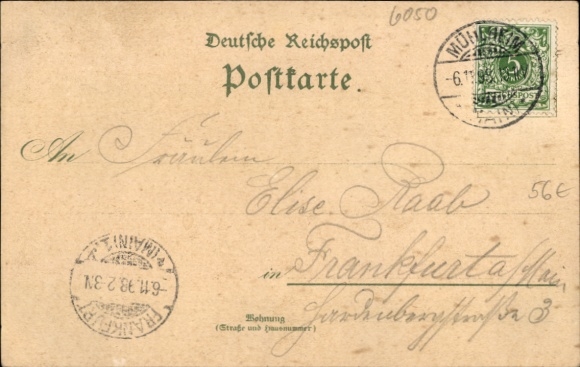 6050
Deutsche Reichspost
Postkarte.
MÜHLHEIM
-6.11.98
(MAIN)
5
An Fräulein
Elise Raab
56€
in Frankfurt a/Main,
Hardenbergstraße 3
Wohnung
(Straße und Hausnummer)
FRANKFURT
-6.11.98. 2-3N.
*(MAIN) 1.*